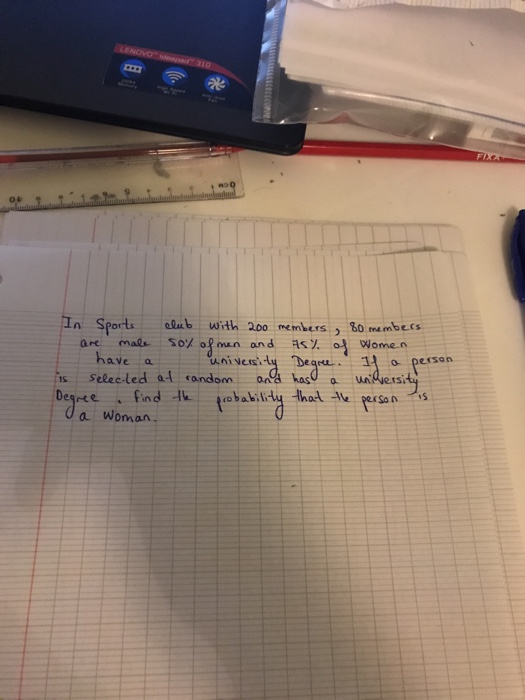 LENOVO ideapad 310
FIXA
In Sports club with 200 members, 80 members
are male 50% of men and 75% of women
have a university Degree. If a person
is selected at random and has a university
Degree, find the probability that the person is
a woman.